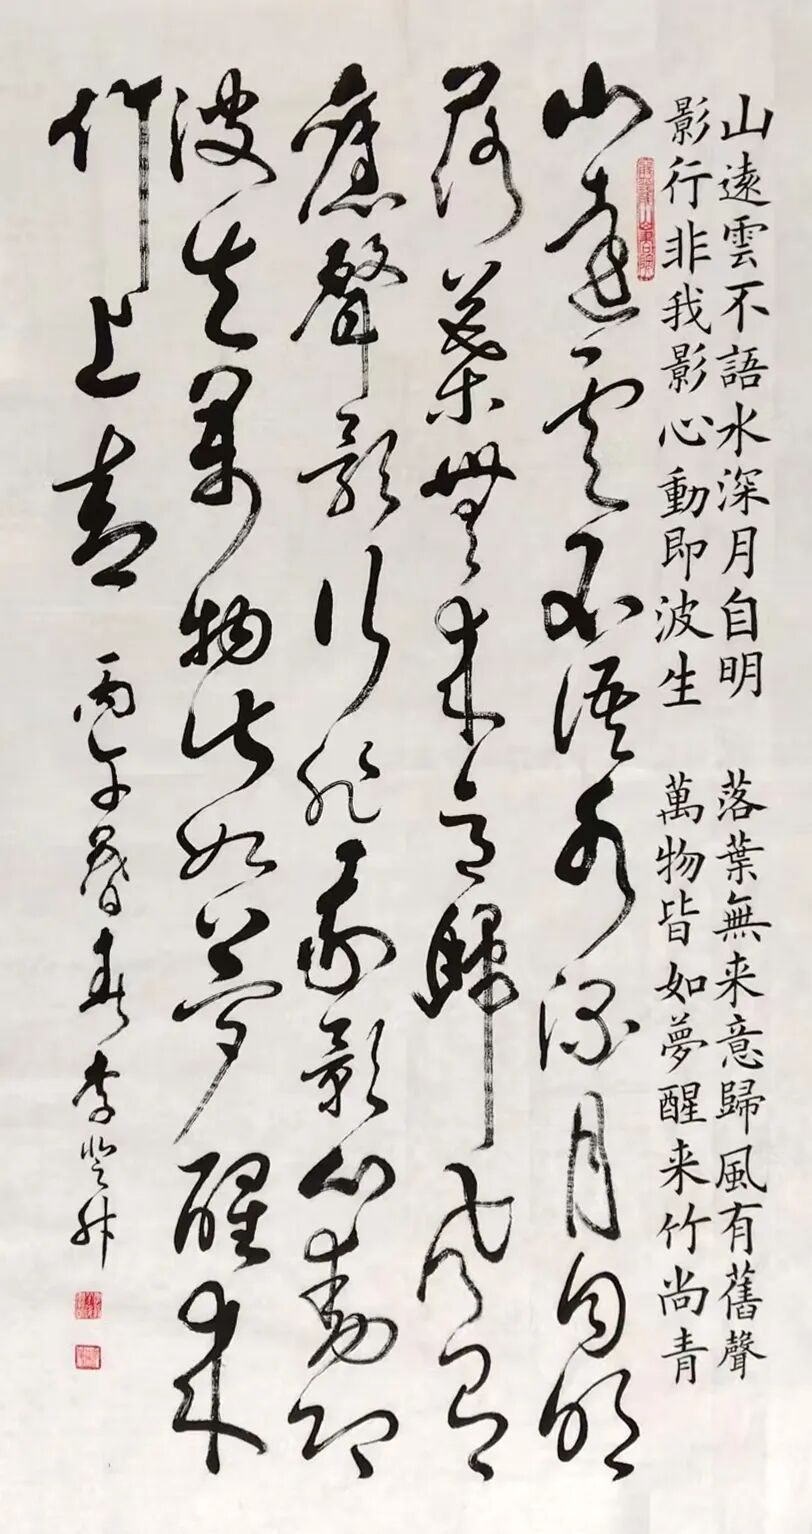 山遠雲不語水深月自明 落葉無来意歸風有舊聲
影行非我影心動即波生 萬物皆如夢醒来竹尚青
山遠雲不語水深月自明
落葉無来意歸風有
舊聲影行非我影心動即
波生萬物皆如夢醒来
竹尚青 丙午暮春李登